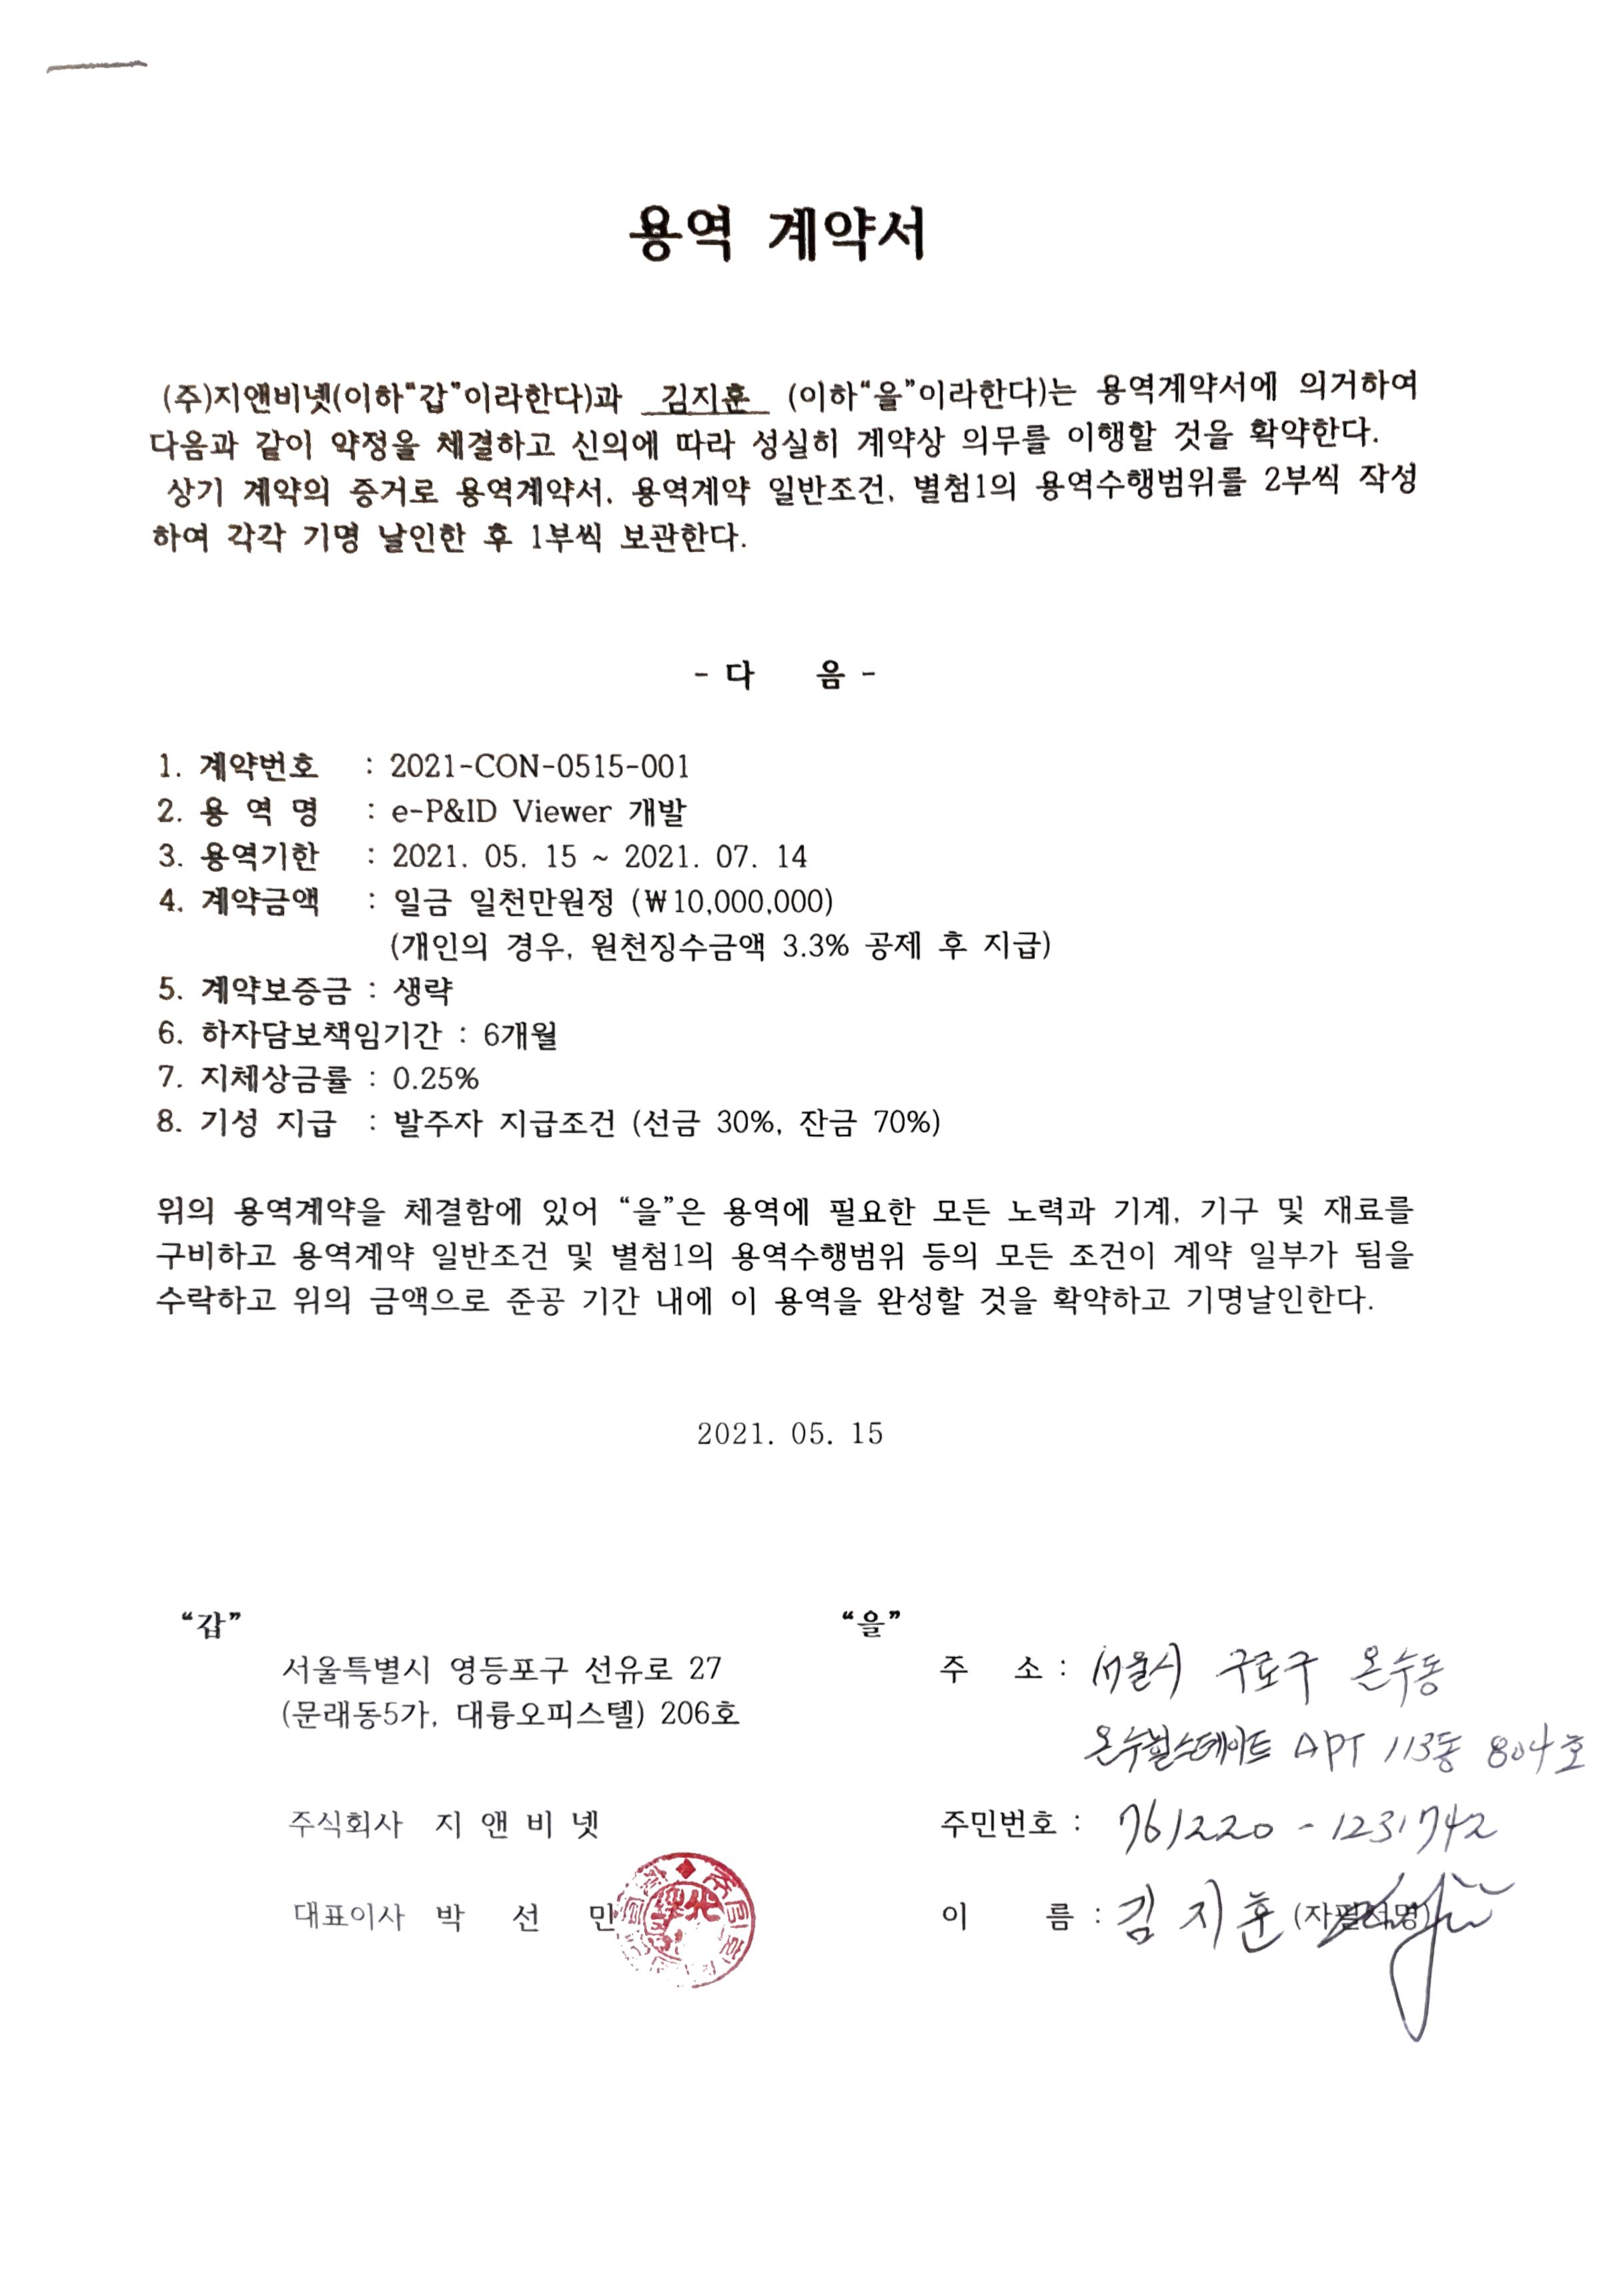 용역 계약서
(주)지앤비넷(이하“갑”이라한다)과 김지훈 (이하“을”이라한다)는 용역계약서에 의거하여
다음과 같이 약정을 체결하고 신의에 따라 성실히 계약상 의무를 이행할 것을 확약한다.
상기 계약의 증거로 용역계약서, 용역계약 일반조건, 별첨1의 용역수행범위를 2부씩 작성
하여 각각 기명 날인한 후 1부씩 보관한다.
- 다 음 -
1. 계약번호 : 2021-CON-0515-001
2. 용 역 명 : e-P&ID Viewer 개발
3. 용역기한 : 2021. 05. 15 ~ 2021. 07. 14
4. 계약금액 : 일금 일천만원정 (₩10,000,000)
(개인의 경우, 원천징수금액 3.3% 공제 후 지급)
5. 계약보증금 : 생략
6. 하자담보책임기간 : 6개월
7. 지체상금률 : 0.25%
8. 기성 지급 : 발주자 지급조건 (선금 30%, 잔금 70%)
위의 용역계약을 체결함에 있어 “을”은 용역에 필요한 모든 노력과 기계, 기구 및 재료를
구비하고 용역계약 일반조건 및 별첨1의 용역수행범위 등의 모든 조건이 계약 일부가 됨을
수락하고 위의 금액으로 준공 기간 내에 이 용역을 완성할 것을 확약하고 기명날인한다.
2021. 05. 15
“갑” “을”
서울특별시 영등포구 선유로 27 주 소 : 서울시 구로구 온수동
(문래동5가, 대륭오피스텔) 206호 온수힐스테이트 APT 113동 804호
주식회사 지 앤 비 넷 주민번호 : 761220 - 1231742
대표이사 박 선 민 이 름 : 김 지 훈 (자필서명)